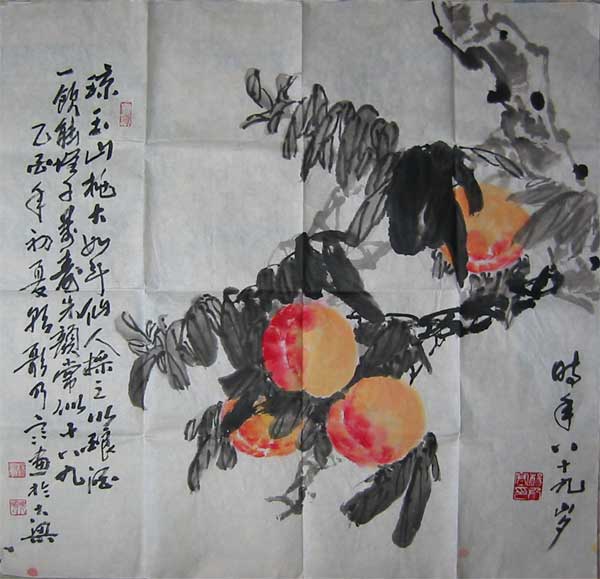 琼玉山桃大如斗仙人採之以酿酒
一饮能增千万寿朱颜常似十八九
乙酉年初夏 画於大梁
時年八十九岁